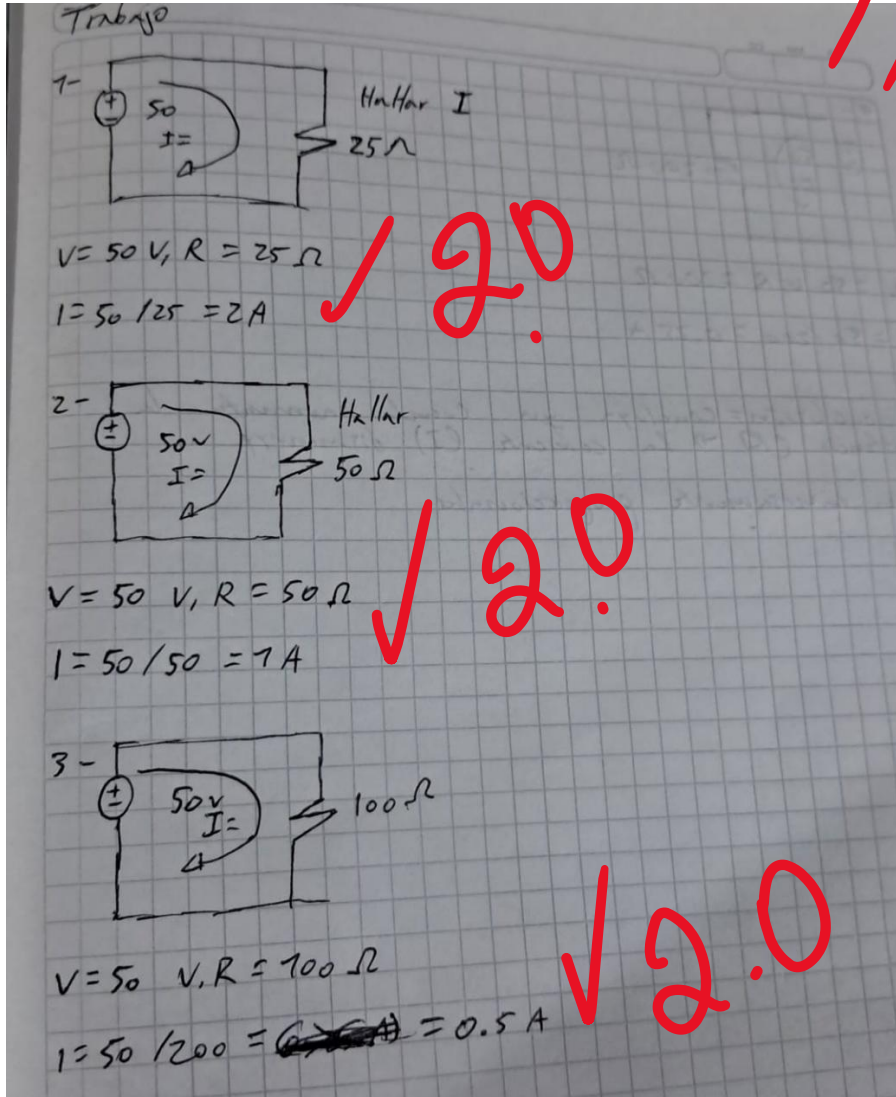 Trabajo
1-
50
I=
Hallar I
25Ω
V = 50 V, R = 25 Ω
I = 50 / 25 = 2 A
2.0
2-
50v
I=
Hallar
50 Ω
V = 50 V, R = 50 Ω
I = 50 / 50 = 1 A
2.0
3-
50v
I=
100Ω
V = 50 V, R = 100 Ω
I = 50 / 200 = = 0.5 A
2.0